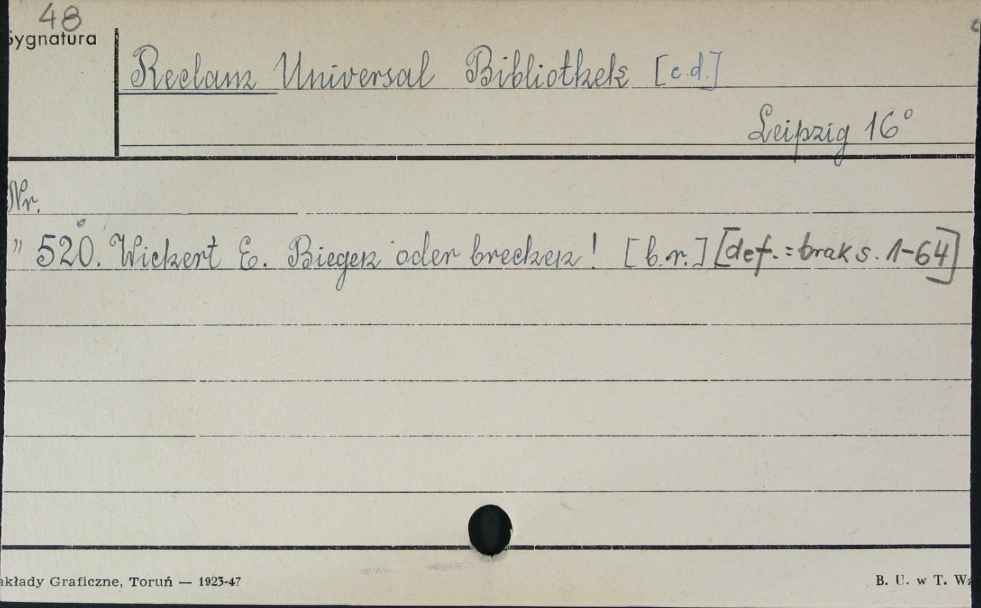 48
Sygnatura
Reclam Universal Bibliothek [c.d.]
Leipzig 16°
Nr.
" 520. Wichert E. Biegen oder brechen! [b.r.] [def.=brak s. 1-64]
akłady Graficzne, Toruń — 1923-47
B. U. w T.